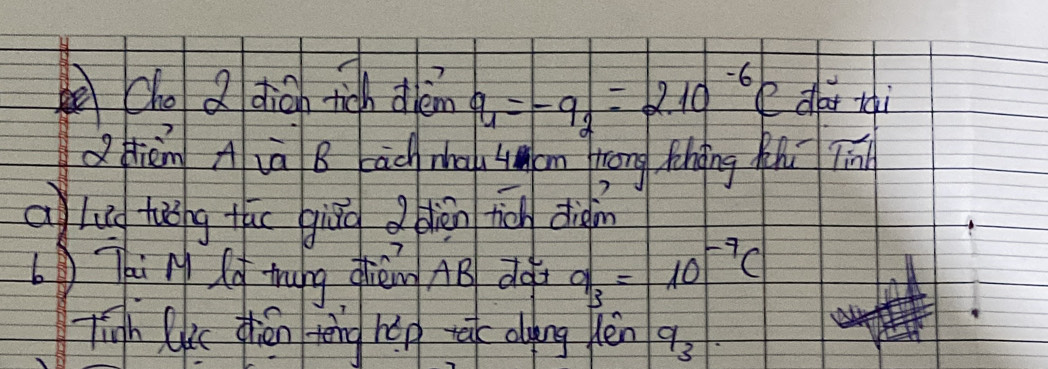 Cho 2 điện tích điểm q₁ = -q₂ = 2.10⁻⁶C đặt tại
2 điểm A và B cách nhau 4cm trong không khí Tính
a) Lực tương tác giữa 2 điện tích điểm
b) Tại M là trung điểm AB đặt q₃ = 10⁻⁷C
Tính lực điện tổng hợp tác dụng lên q₃.